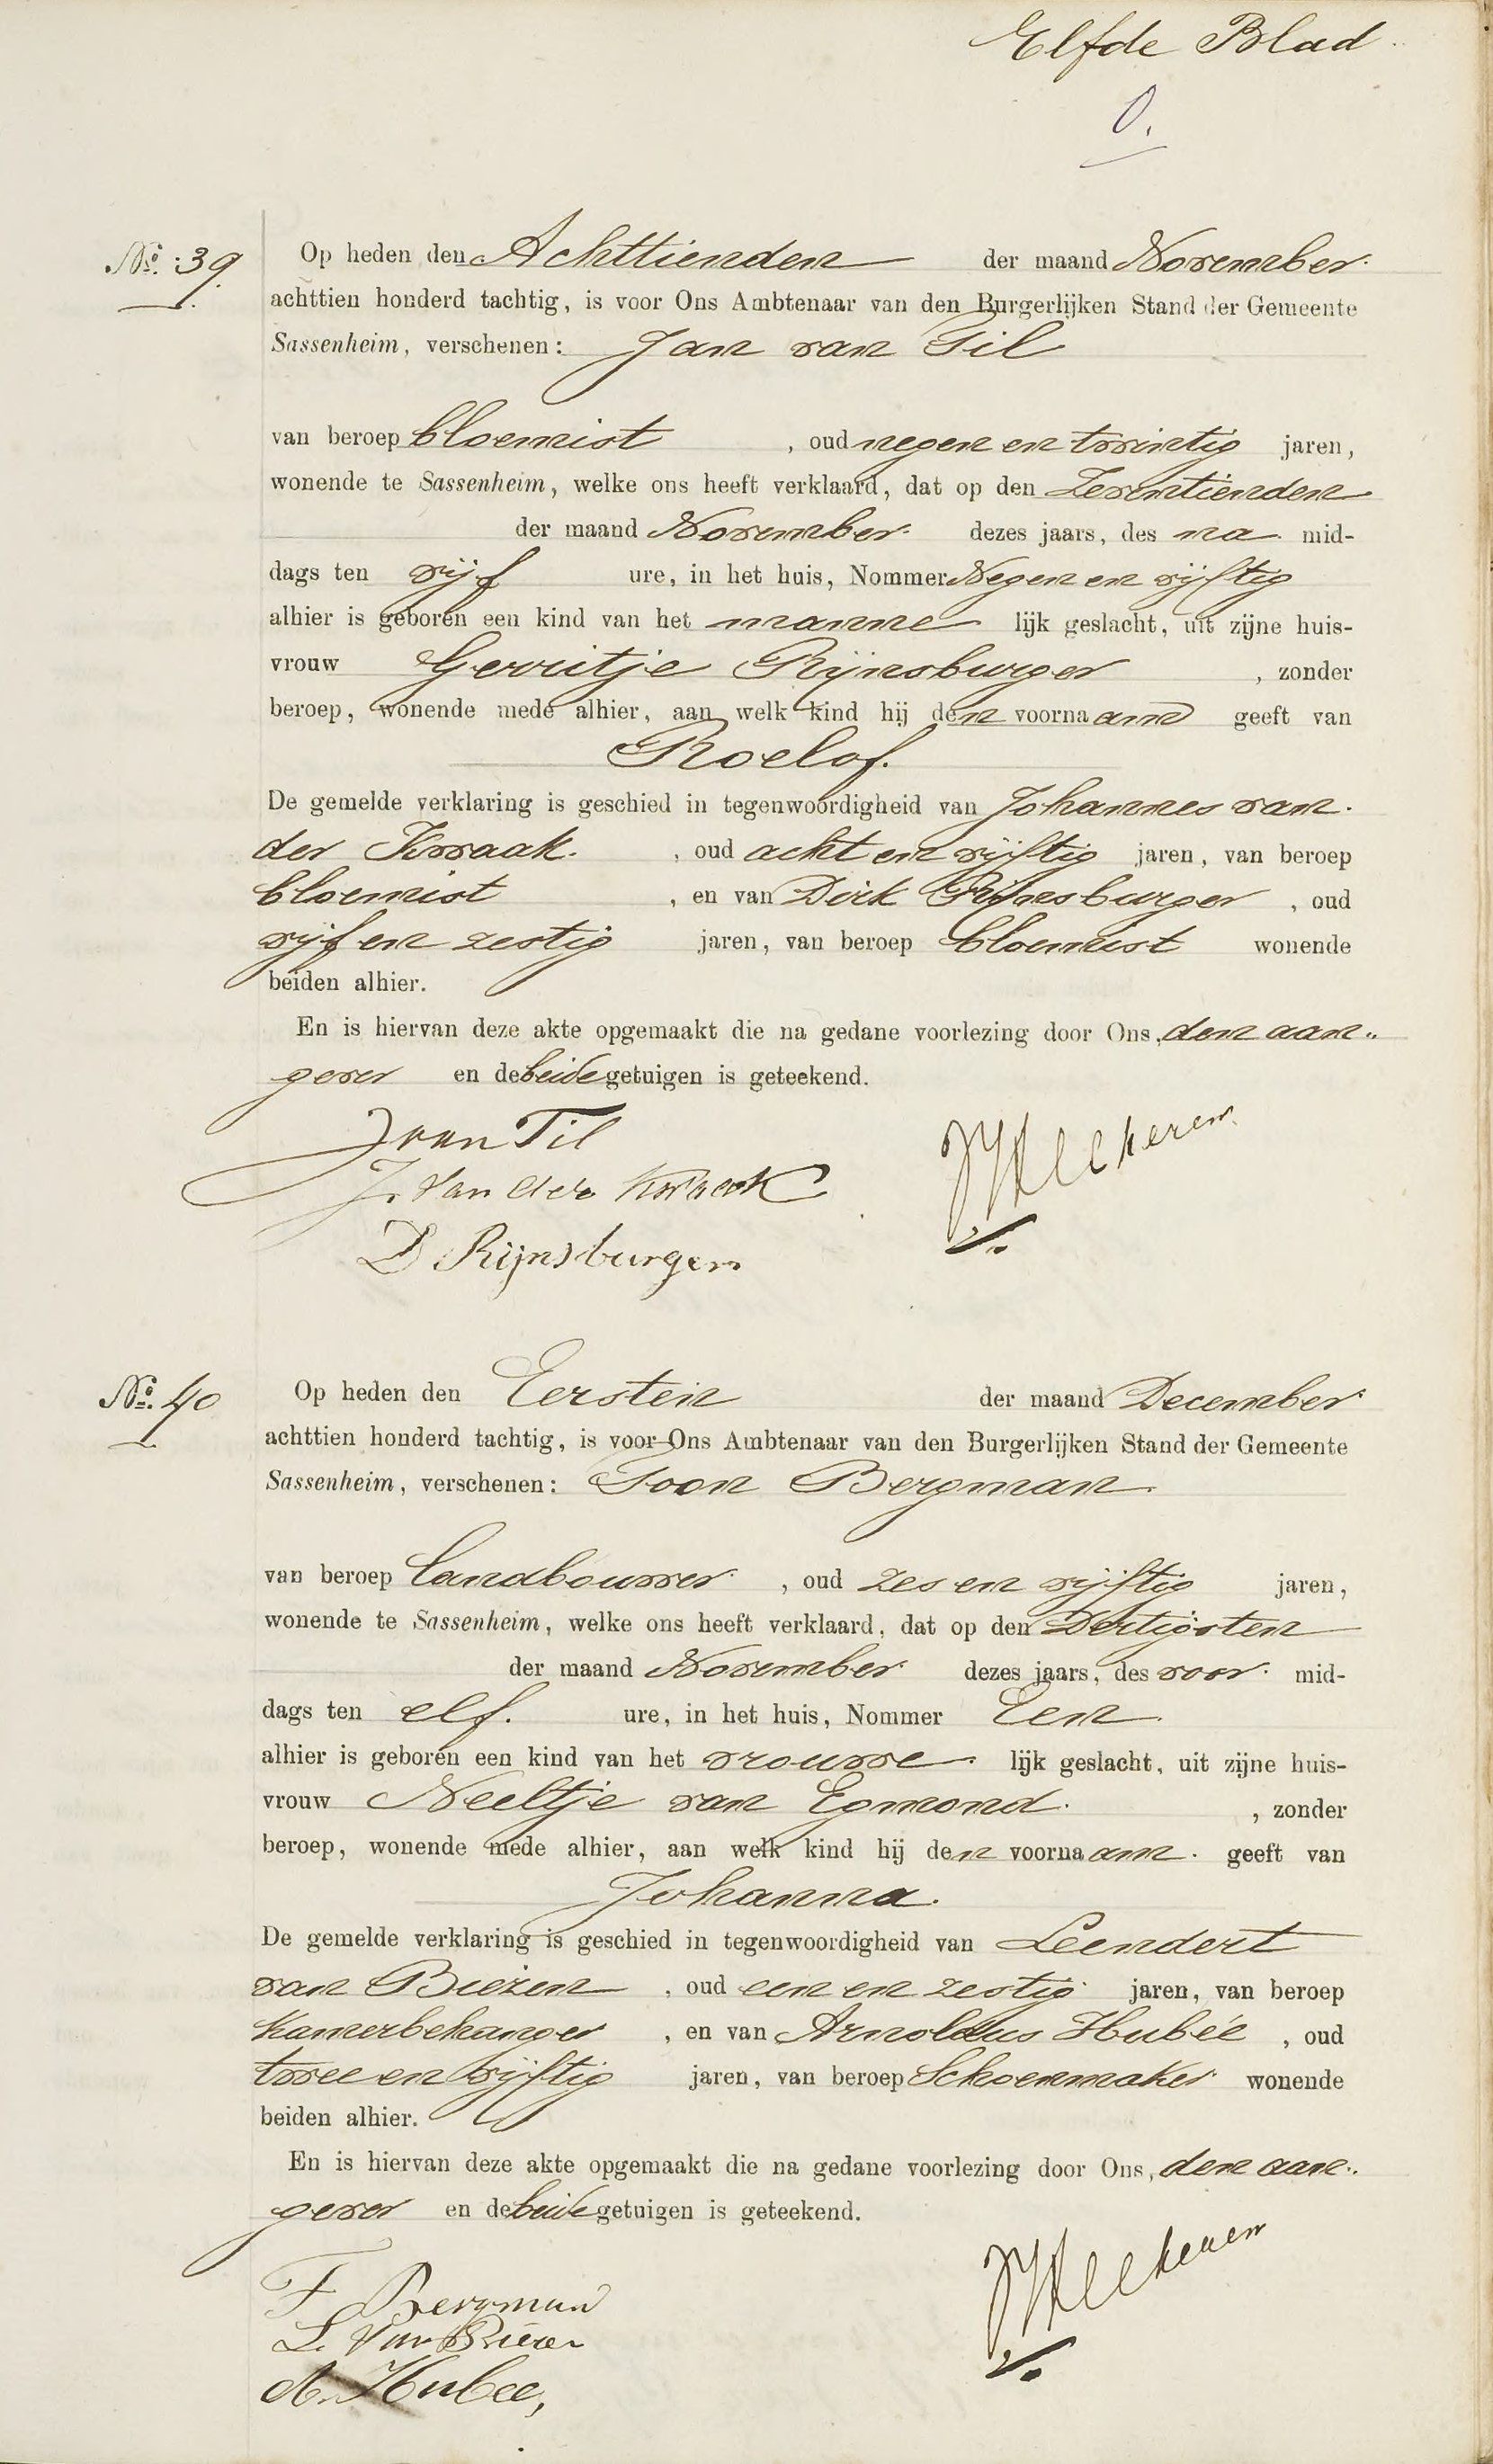 Elfde Blad
No. 39.
Op heden den Achttienden der maand November
achttien honderd tachtig, is voor Ons Ambtenaar van den Burgerlijken Stand der Gemeente
Sassenheim, verschenen: Jan van Til
van beroep bloemist, oud negen en twintig jaren,
wonende te Sassenheim, welke ons heeft verklaard, dat op den Zeventienden
der maand November dezes jaars, des na mid-
dags ten vijf ure, in het huis, Nommer Negen en vijftig
alhier is geboren een kind van het manne lijk geslacht, uit zijne huis-
vrouw Gerritje Rijnsburger, zonder
beroep, wonende mede alhier, aan welk kind hij den voornaam geeft van
Roelof.
De gemelde verklaring is geschied in tegenwoordigheid van Johannes van
der Kwaak, oud acht en vijftig jaren, van beroep
bloemist, en van Dirk Rijnsburger, oud
vijf en zestig jaren, van beroep bloemist wonende
beiden alhier.
En is hiervan deze akte opgemaakt die na gedane voorlezing door Ons, den aan-
gever en de beide getuigen is geteekend.
J van Til
J. van der Kwaak
D Rijnsburger
No. 40
Op heden den Eersten der maand December
achttien honderd tachtig, is voor Ons Ambtenaar van den Burgerlijken Stand der Gemeente
Sassenheim, verschenen: Toon Bergman
van beroep landbouwer, oud zes en vijftig jaren,
wonende te Sassenheim, welke ons heeft verklaard, dat op den Dertigsten
der maand November dezes jaars, des voor mid-
dags ten elf. ure, in het huis, Nommer Een
alhier is geboren een kind van het vrouwe lijk geslacht, uit zijne huis-
vrouw Neeltje van Egmond, zonder
beroep, wonende mede alhier, aan welk kind hij den voornaam geeft van
Johanna.
De gemelde verklaring is geschied in tegenwoordigheid van Leendert
van Biezen, oud een en zestig jaren, van beroep
Kamerbehanger, en van Arnoldus Hubée, oud
twee en vijftig jaren, van beroep Schoenmaker wonende
beiden alhier.
En is hiervan deze akte opgemaakt die na gedane voorlezing door Ons, den aan-
gever en de beide getuigen is geteekend.
T Bergman
L. van Biezen
A. Hubee,